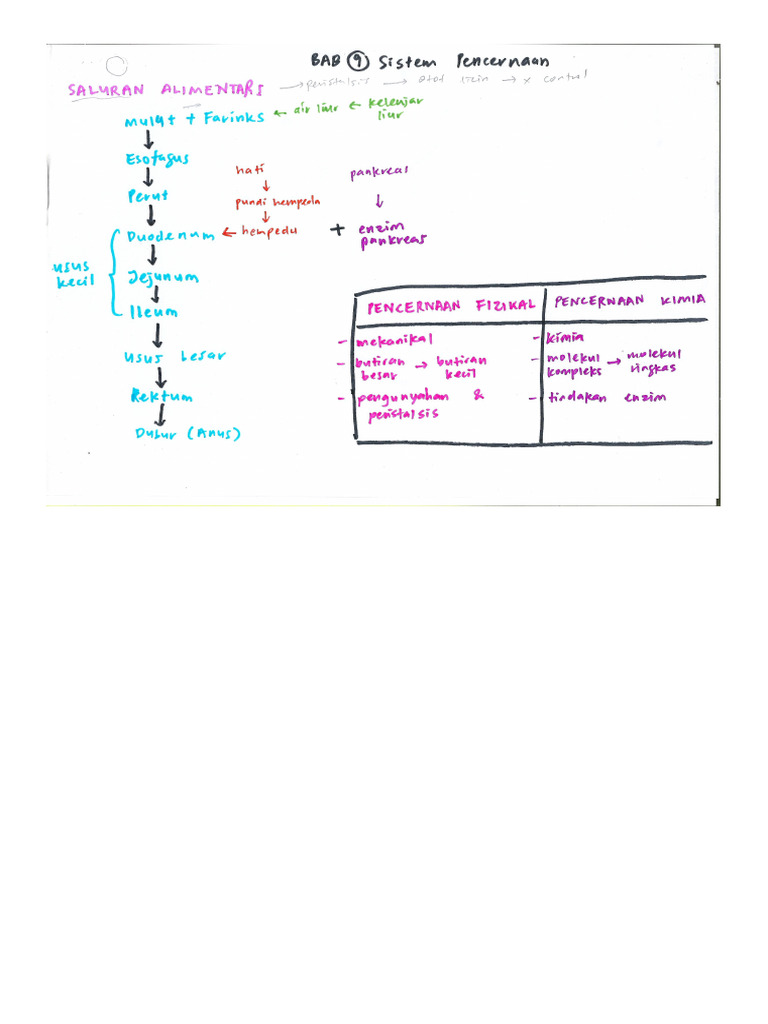 BAB 9 Sistem Pencernaan
SALURAN ALIMENTARI → peristalsis → otot licin → x control
Mulut + Farinks ← air liur ← kelenjar liur
Esofagus
Perut
hati
pundi hempedu
pankreas
usus kecil
Duodenum ← hempedu + enzim pankreas
Jejunum
Ileum
usus besar
Rektum
Dubur (Anus)
PENCERNAAN FIZIKAL
- mekanikal
- butiran besar → butiran kecil
- pengunyahan & peristalsis
PENCERNAAN KIMIA
- kimia
- molekul kompleks → molekul ringkas
- tindakan enzim